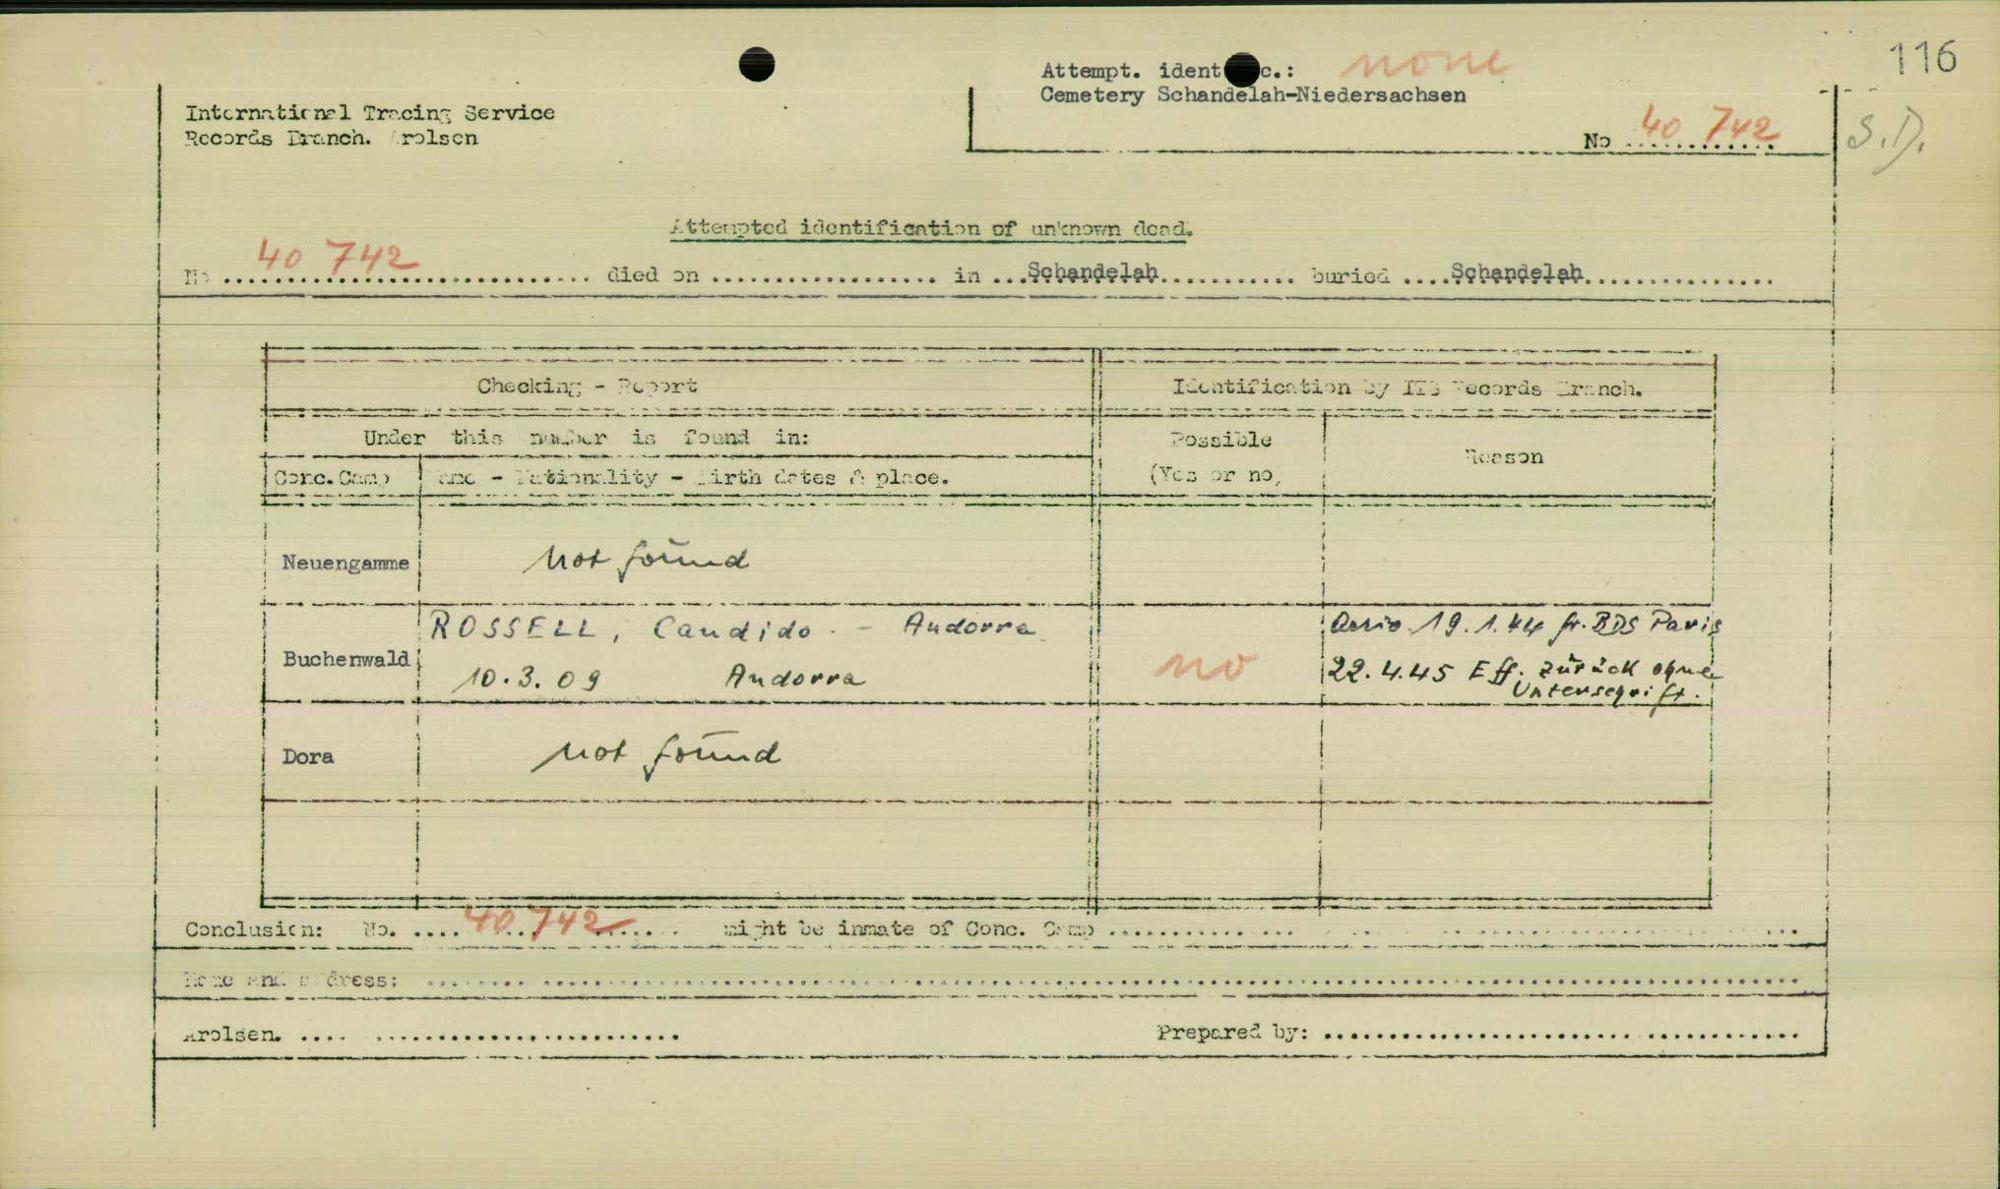 116
Attempt. ident c.: none
Cemetery Schandelah-Niedersachsen
International Tracing Service
Records Branch. Arolsen
No 40 742
S.D.
Attempted identification of unknown dead.
No 40 742 died on in Schandelah buried Schandelah
Checking - Report
Identification by ITS Records Branch.
Under this number is found in:
Possible
(Yes or no)
Reason
Conc. Camp
Name - Nationality - Birth dates & place.
Neuengamme
not found
Buchenwald
ROSSELL, Candido. - Andorra
10.3.09 Andorra
no
19.1.44 fr. BDS Paris
22.4.45 Eff. zurück ohne
Unterschrift.
Dora
not found
Conclusion: No. 40 742 might be inmate of Conc. Camp
Name and address:
Arolsen.
Prepared by: